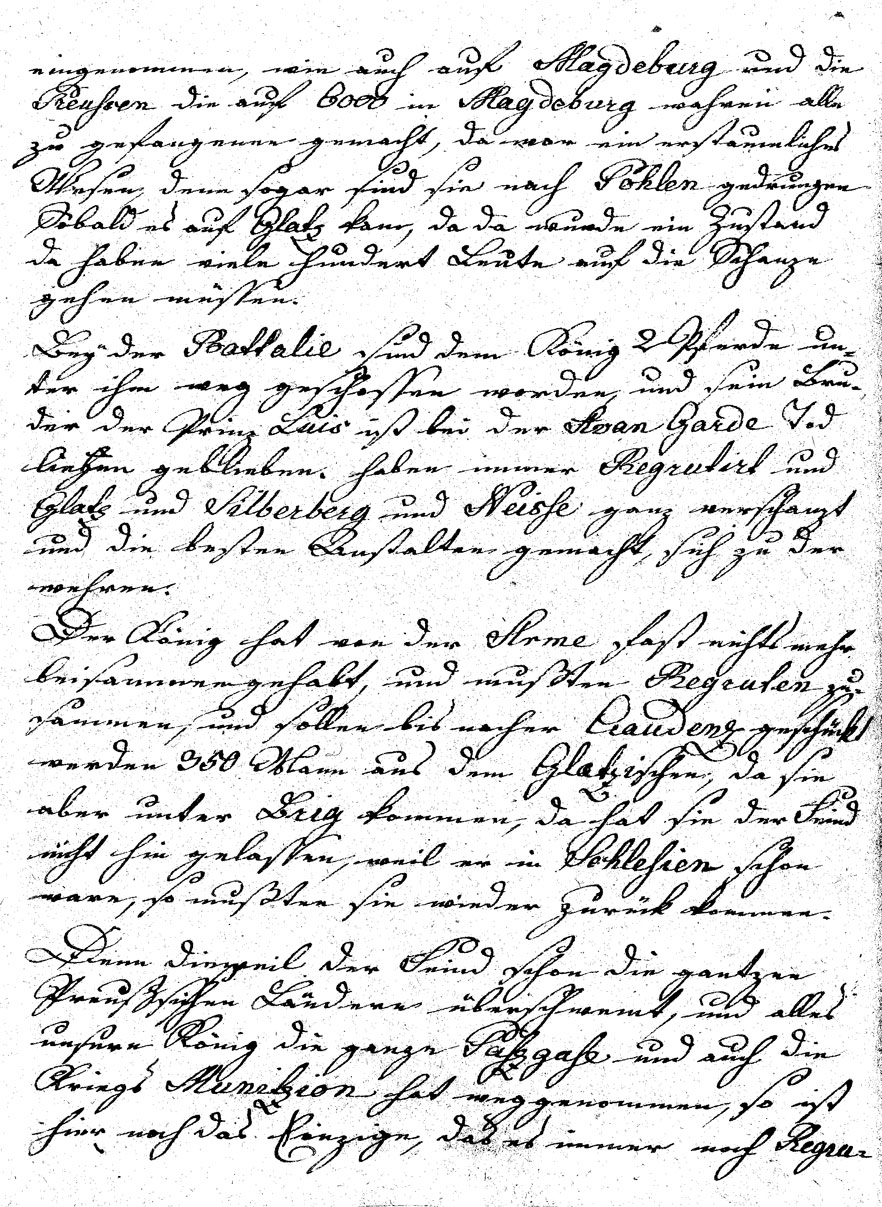 eingenommen, wie auch auf Magdeburg und die
Preussen die auf 6000 in Magdeburg wahren alle
zu gefangene gemacht, da war ein erstaunliches
Wesen, denn sogar sind sie nach Pohlen gedrungen
Sobald es auf Glatz kam, da da wurde ein Zustand
da haben viele hundert Leute auf die Schanze
gehen müssen.
Bey der Battalie sind dem König 2 Pferde un-
ter ihm weg geschossen worden, und sein Bru-
der der Prinz Luis ist bei der Avan Garde Tod
liegen geblieben. haben immer Regrutirt und
Glatz und Silberberg und Neisse ganz verschanzt
und die besten Anstalten gemacht, sich zu der
wehren.
Der König hat von der Arme fast nichts mehr
beisammen gehabt, und mußten Regruten zu-
sammen, und sollen bis nacher Graudenz geschückt
werden 350 Mann aus dem Glatzischen, da sie
aber unter Brig kommen, da hat sie der Feind
nicht hin gelassen, weil er in Schlesien schon
ware, so mußten sie wieder zurück kommen.
Denn dieweil der Feind schon die gantzen
Preußsichen Ländern überschwemt, und alles
unsern König die ganze Paßgase und auch die
Kriegs Munitzion hat weggenommen, so ist
hier noch das Einzige, das es immer noch Regru-